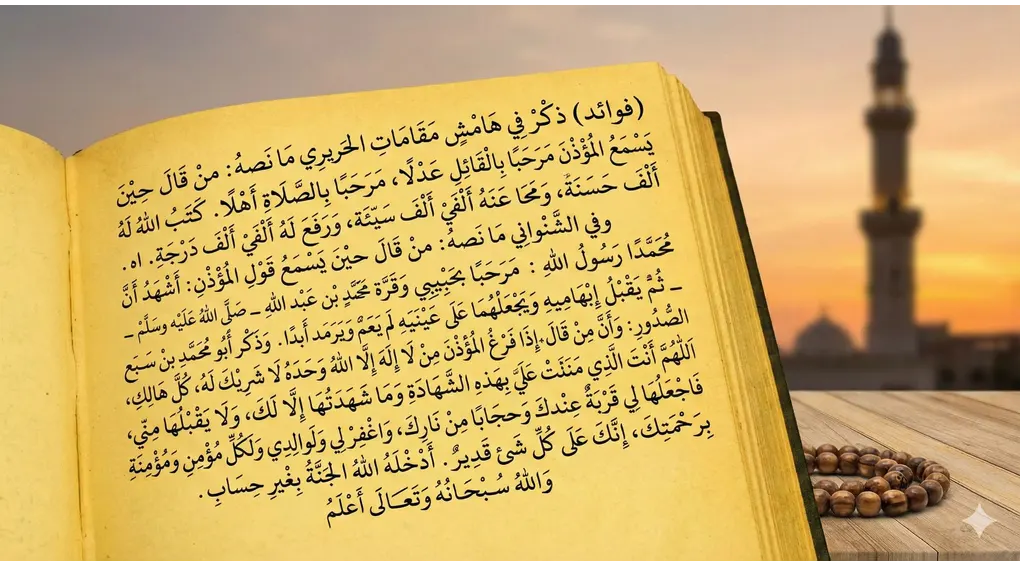 (فوائد) ذكْرْ فِي هَامْشٍ مَقَامَاتِ الحَرِيرِي مَا نَصهُ: منْ قَالَ حِيْنَ
يَسْمَعُ المُؤْذّنَ مَرَحَبًا بِالْقَائِلِ عَدْلًا، مَرَحَبًا بِالصَّلَاةِ أَهْلًا. كَتَبُ اللهُ لهُ
أَلْفَ حَسَنَةً، وَمَحَا عَنَهُ أَلْفَيْ أَلْفَ سَيّئَة، وَرَفَعَ لَهُ أَلْفَيْ أَلْفَ دَرَجَةِ. اه.
وفي الشَّنْوانِي مَا نَصهُ: منْ قَالَ حيْنَ يَسْمَعُ قَوْلِ المُؤْذّنِ: أَشْهَدُ أَنَّ
مُحَمَّدًا رَسُولُ اللهِ : مَرَحَبًا بحَبِيْبِي وَقَرَّة مُحَمَّدٍ بْن عَبْد اللهِ ـ صَلَّى اللهُ عَلَيْه وَسَلَّمْ ـ
ـ ثُمَّ يَقْبُلُ إِبْهَامِيهِ وَيَجْعَلُهُمَا عَلَى عَيْنَيَهِ لَمْ يَعَمْ وَيَرمَد أَبدًا. وَذَكْر أَبُو مُحَمَّد بنْ سَبَعَ
الصُّدُورِ: وَأَنَّ مِنْ قَالَ إِذَا فَرْغُ المُؤْذّنَ مِنْ لَا إِلَهَ إِلَّا اللهُ وَحَدَهُ لَا شَرِيْكَ لَهُ، كُلَّ هَالِكِ،
اَللّٰهُمَّ أَنْتَ الَّذِي مَنَنْتَ عَلَيَّ بِهَذِهِ الشَّهَادَةِ وَمَا شَهَدَتُهَا إِلَّا لَكَ، وَلَا يَقْبُلُهَا مِنِّي،
فَاجْعَلُهَا لِي قَرْبَةً عِنْدكَ وَحجَابًا مِنْ نَارِكَ، وَاغْفِرْ لِي وَلَوالِدِي وَلَكُلِّ مُؤْمِنِ وَمُؤْمِنَةِ
بِرَحْمَتِكَ، إِنَّكَ عَلَى كُلِّ شَئ قَدِيرٌ. أَدْخَلَهُ اللهُ الجَنَّةُ بِغَيرِ حِسَابِ.
وَاللهُ سُبْحَانُهُ وَتَعَالَى أَعْلَمُ